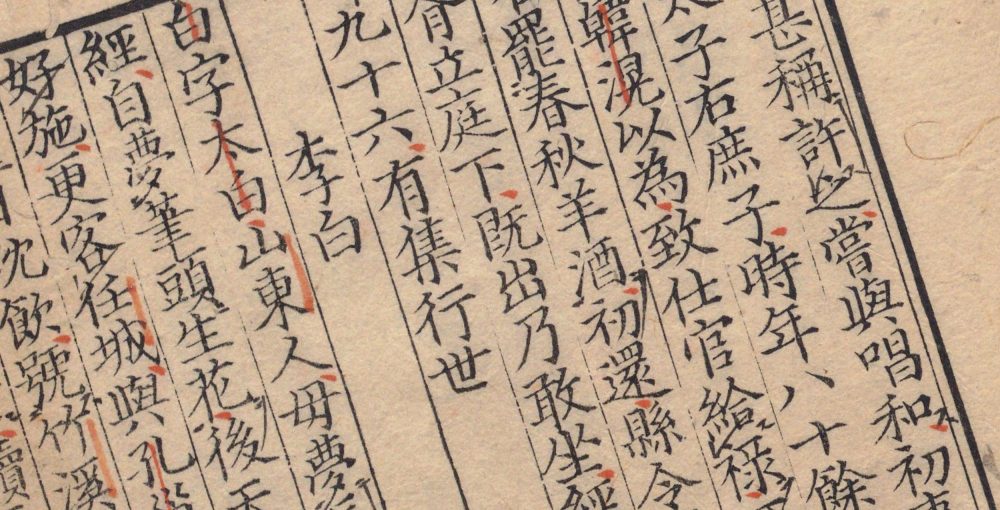 甚稱許之嘗與唱和初
太子右庶子時年八十餘
韓滉以為致仕官給祿
罷春秋羊酒初還縣令
胥立庭下既出乃敢坐經
九十六有集行世
李白
白字太白山東人母夢
經自夢筆頭生花後天
好施更客任城與孔
日沈飲號竹溪